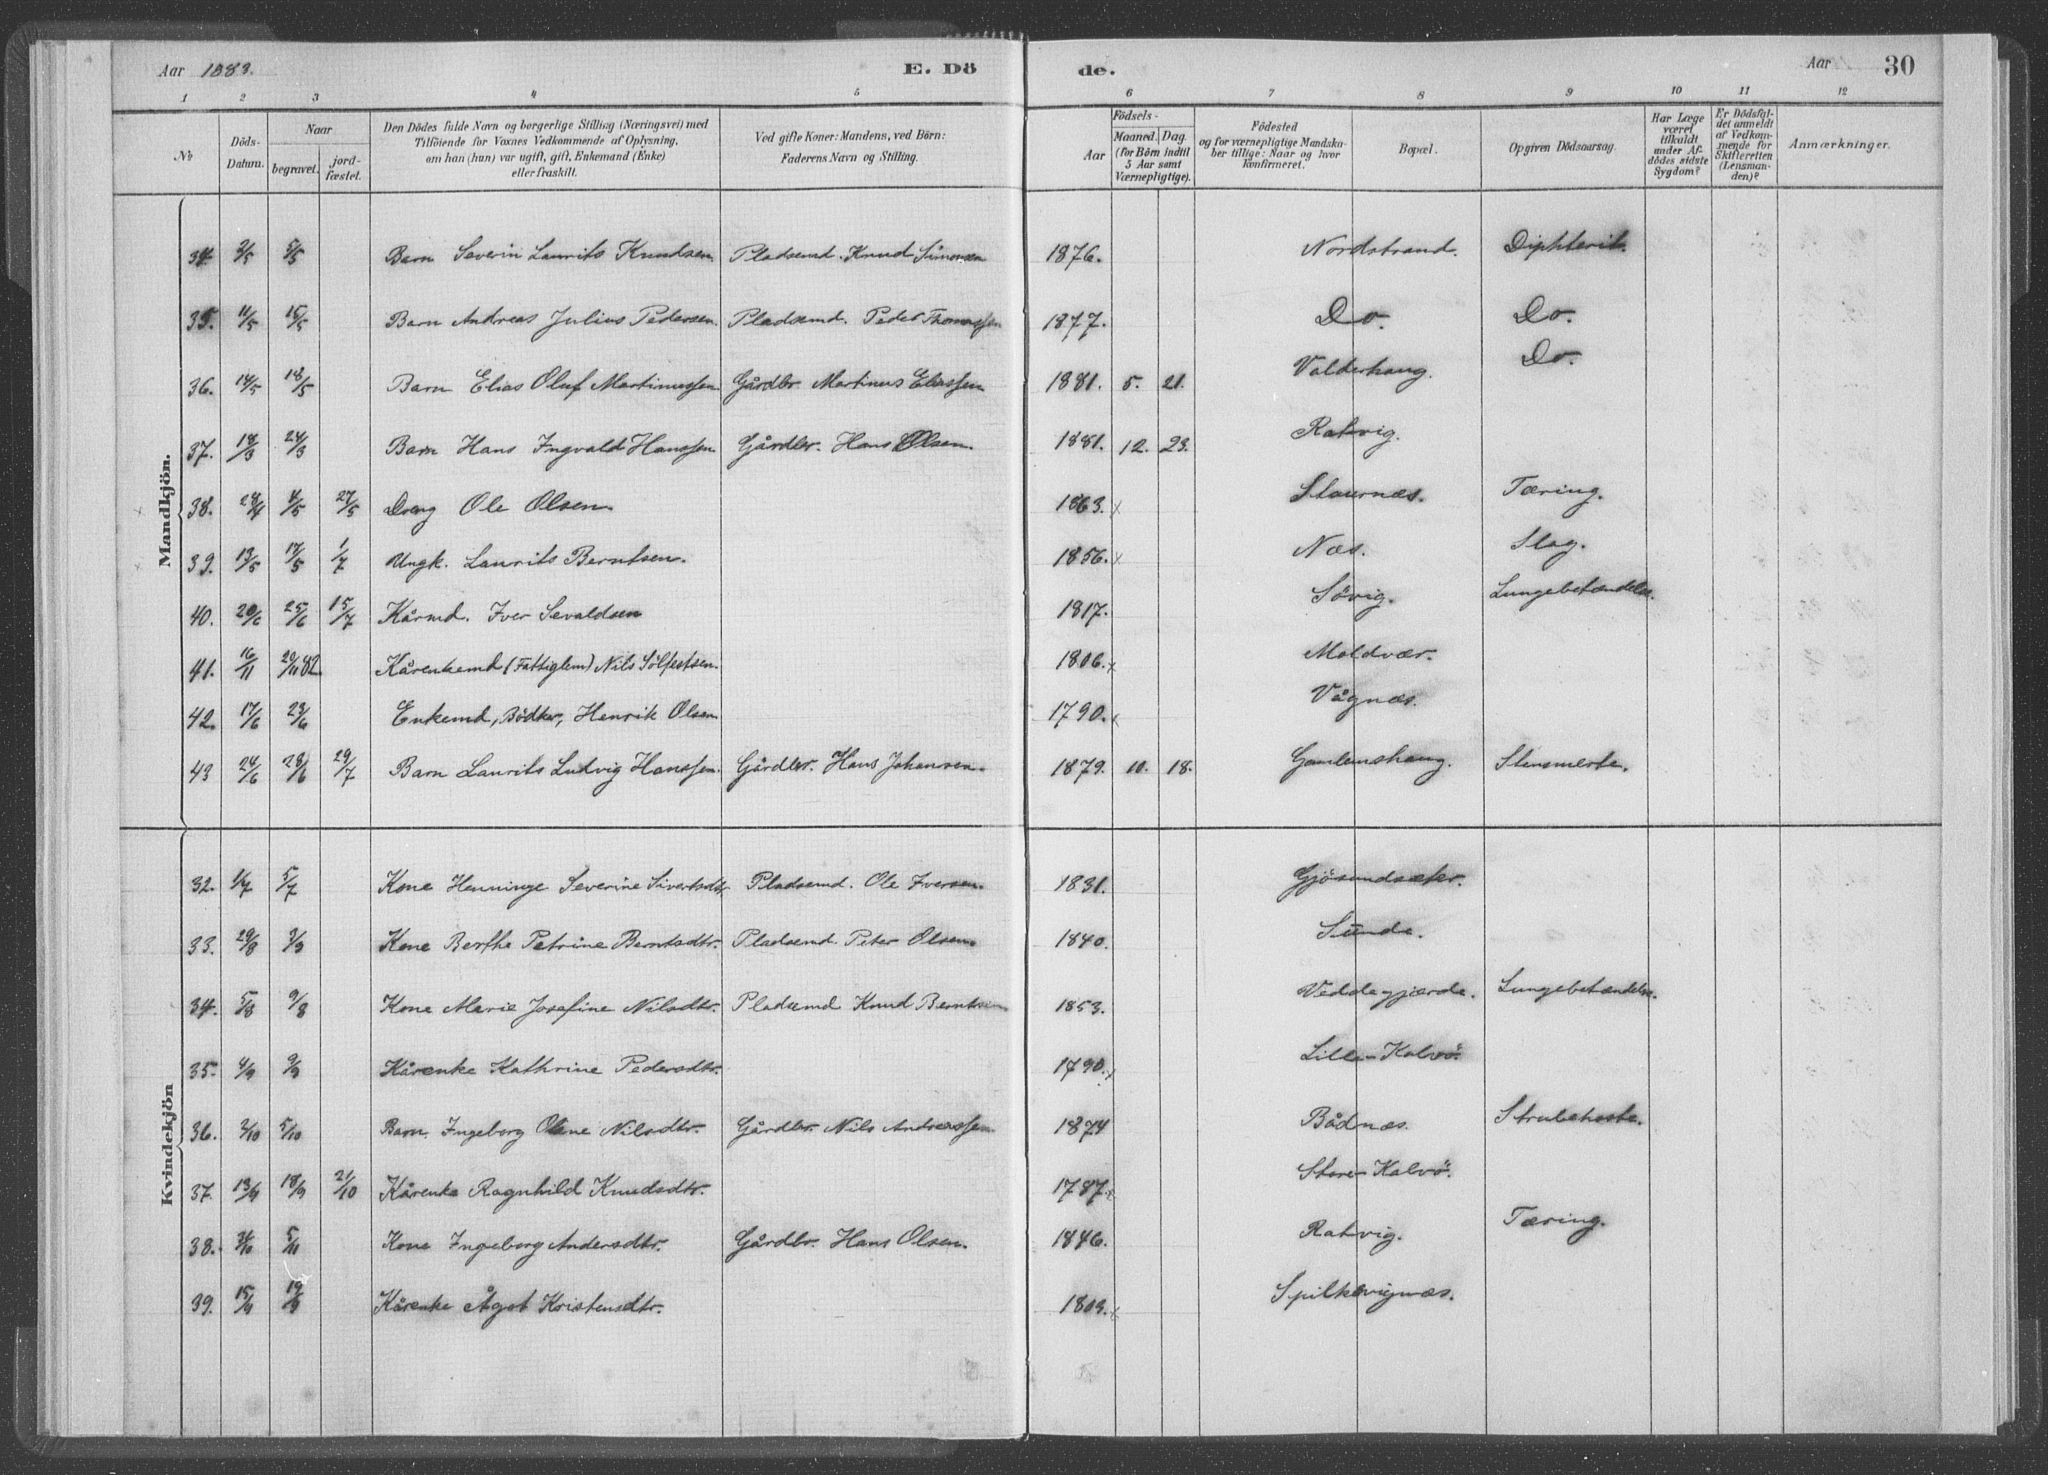 Aar 1883. E. Dö de. Aar 30
1 2 3 4 5 6 7 8 9 10 11 12
No Döds-Datum. Naar begravet. jord-fæstet. Den Dödes fulde Navn og borgerlige Stilling (Næringsvei) med Tilföiende for Voxnes Vedkommende af Oplysning, om han (hun) var ugift, gift, Enkemand (Enke) eller fraskilt. Ved gifte Koner: Mandens, ved Börn: Faderens Navn og Stilling. Födsels- Aar Maaned. Dag. (for Börn indtil 5 Aar samt Værnepligtige). Födested og for værnepligtige Mandskaber tillige: Naar og hvor konfirmeret. Bopæl. Opgiven Dödsaarsag. Har Læge været tilkaldt under Afdödes sidste Sygdom? Er Dödsfaldet anmeldt af Vedkommende for Skifteretten (Lensmanden)? Anmærkninger.
Mandkjön.
34. 2/5 5/5 Barn Severin Laurits Knudsen. Pladsemd. Knud Simonsen 1876. Nordstrand. Diphterit.
35. 11/5 15/5 Barn Andreas Julius Pedersen. Pladsemd. Peder Thomassen 1877. Do. Do.
36. 14/5 18/5 Barn Elias Oluf Martinussen. Gårdbr. Martinus Eliassen 1881. 5. 21. Valderhaug. Do.
37. 18/3 24/3 Barn Hans Ingvald Hanssen. Gårdbr. Hans Olsen. 1881. 12. 23. Ratvig.
38. 28/4 4/5 27/5 Dreng Ole Olsen. 1863. x Staurnæs. Tæring.
39. 13/5 17/5 1/7 Ungk. Laurits Berntsen. 1856. x Næs. Slag.
40. 20/6 25/6 15/7 Kårmd. Iver Sevaldsen 1817. Sövig. Lungebetændelse.
41. 16/11 20/11 82 Kårenkemd (Fattiglem) Nils Sölfestsen. 1806. x Moldvær.
42. 17/6 23/6 Enkemd, Bödker, Henrik Olsen 1790. x Vågnæs.
43 24/6 28/6 29/7 Barn Laurits Ludvig Hanssen. Gårdbr. Hans Johansen. 1879. 10. 18. Gamlemshaug. Stensmerte.
Kvindekjön
32. 1/7 5/7 Kone Henninge Severine Sivertsdtr. Pladsemd. Ole Iversen. 1831. Gjösundsæter.
33. 29/8 3/9 Kone Berthe Petrine Berntsdtr. Pladsemd. Peter Olsen. 1840. Sunde.
34. 5/8 9/8 Kone Marie Josefine Nilsdtr. Pladsemd Knud Berntsen 1853. Veddegjerde. Lungebetændelse.
35. 4/9 9/9 Kårenke Kathrine Pedersdtr. 1790. x Lille-Kalvö.
36. 2/10 5/10 Barn. Ingeborg Oline Nilsdtr. Gårdbr. Nils Andreassen 1874 Bådnæs. Strubehoste.
37. 13/9 18/9 21/10 Kårenke Ragnhild Knudsdtr. 1787. x Store-Kalvö.
38. 31/10 5/11 Kone Ingeborg Andersdtr. Gårdbr. Hans Olsen. 1846. Ratvig. Tæring.
39. 15/9 19/9 Kårenke Ågot Kristensdtr. 1803. x Spilkevignæs.